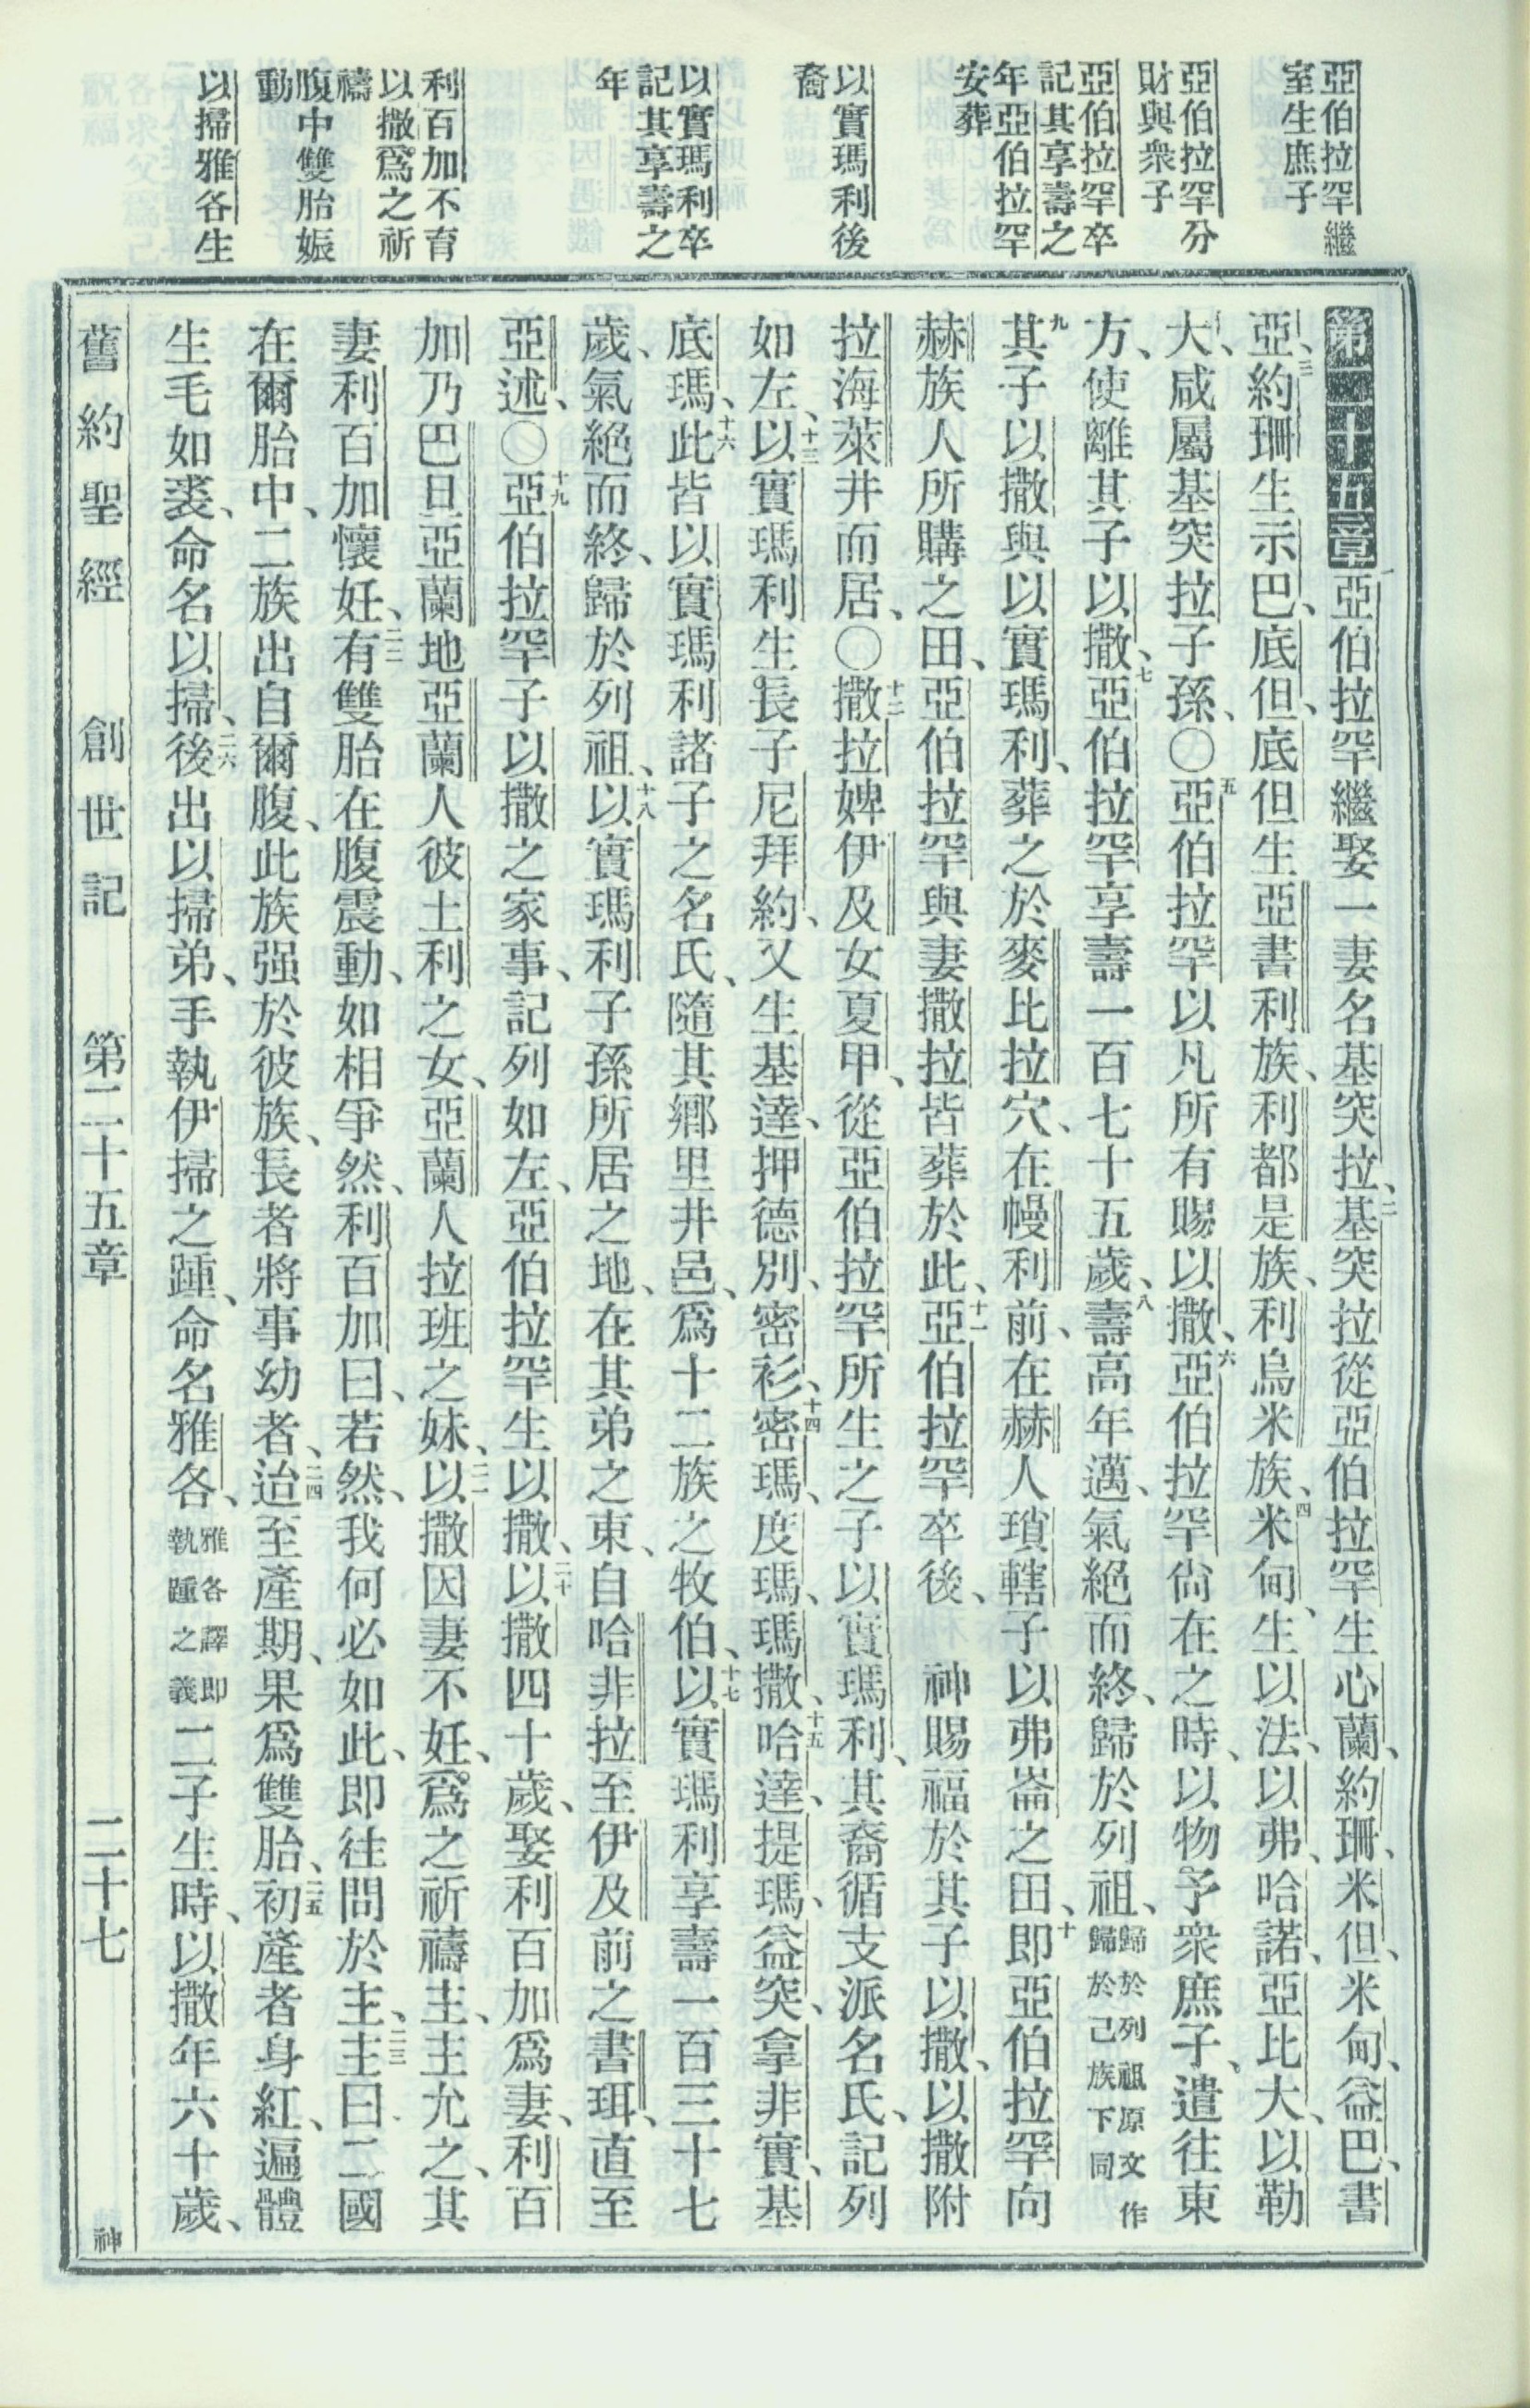 亞伯拉罕繼
室生庶子
亞伯拉罕分
財與衆子
亞伯拉罕卒
記其享壽之
年亞伯拉罕
安葬
以實瑪利後
裔
以實瑪利卒
記其享壽之
年
利百加不育
以撒爲之祈
禱
腹中雙胎娠
動
以掃雅各生
第二十五章一亞伯拉罕繼娶一妻名基突拉、二基突拉從亞伯拉罕生心蘭、約珊、米但、米甸、益巴、書
亞、三約珊生示巴、底但、底但生亞書利族、利都是族、利烏米族、四米甸生以法、以弗、哈諾、亞比大、以勒
大、咸屬基突拉子孫、〇五亞伯拉罕以凡所有賜以撒、六亞伯拉罕尙在之時、以物予衆庶子、遣往東
方、使離其子以撒、七亞伯拉罕享壽一百七十五歲、八壽高年邁、氣絕而終、歸於列祖、歸於列祖原文作歸於己族下同
九其子以撒與以實瑪利、葬之於麥比拉穴、在幔利前、在赫人瑣轄子以弗崙之田、十即亞伯拉罕向
赫族人所購之田、亞伯拉罕與妻撒拉皆葬於此、十一亞伯拉罕卒後、 神賜福於其子以撒、以撒附
拉海萊井而居、〇十二撒拉婢伊及女夏甲、從亞伯拉罕所生之子以實瑪利、其裔循支派名氏、記列
如左、十三以實瑪利生長子尼拜約、又生基達、押德別、密衫、十四密瑪、度瑪、瑪撒、十五哈達、提瑪、益突、拿非實、基
底瑪、十六此皆以實瑪利諸子之名氏、隨其鄉里井邑、爲十二族之牧伯、十七以實瑪利享壽一百三十七
歲、氣絕而終、歸於列祖、十八以實瑪利子孫所居之地、在其弟之東、自哈非拉至伊及前之書珥、直至
亞述、〇十九亞伯拉罕子以撒之家事、記列如左、亞伯拉罕生以撒、二十以撒四十歲、娶利百加爲妻、利百
加乃巴旦亞蘭地亞蘭人彼土利之女、亞蘭人拉班之妹、二一以撒因妻不妊、爲之祈禱主、主允之、其
妻利百加懷妊、二二有雙胎在腹震動、如相爭然、利百加曰、若然、我何必如此、即往問於主、二三主曰、二國
在爾胎中、二族出自爾腹、此族强於彼族、長者將事幼者、二四迨至產期、果爲雙胎、二五初產者身紅、遍體
生毛如裘、命名以掃、二六後出以掃弟、手執伊掃之踵、命名雅各、雅各譯即執踵之義二子生時、以撒年六十歲、
舊約聖經 創世記 第二十五章 二十七 神